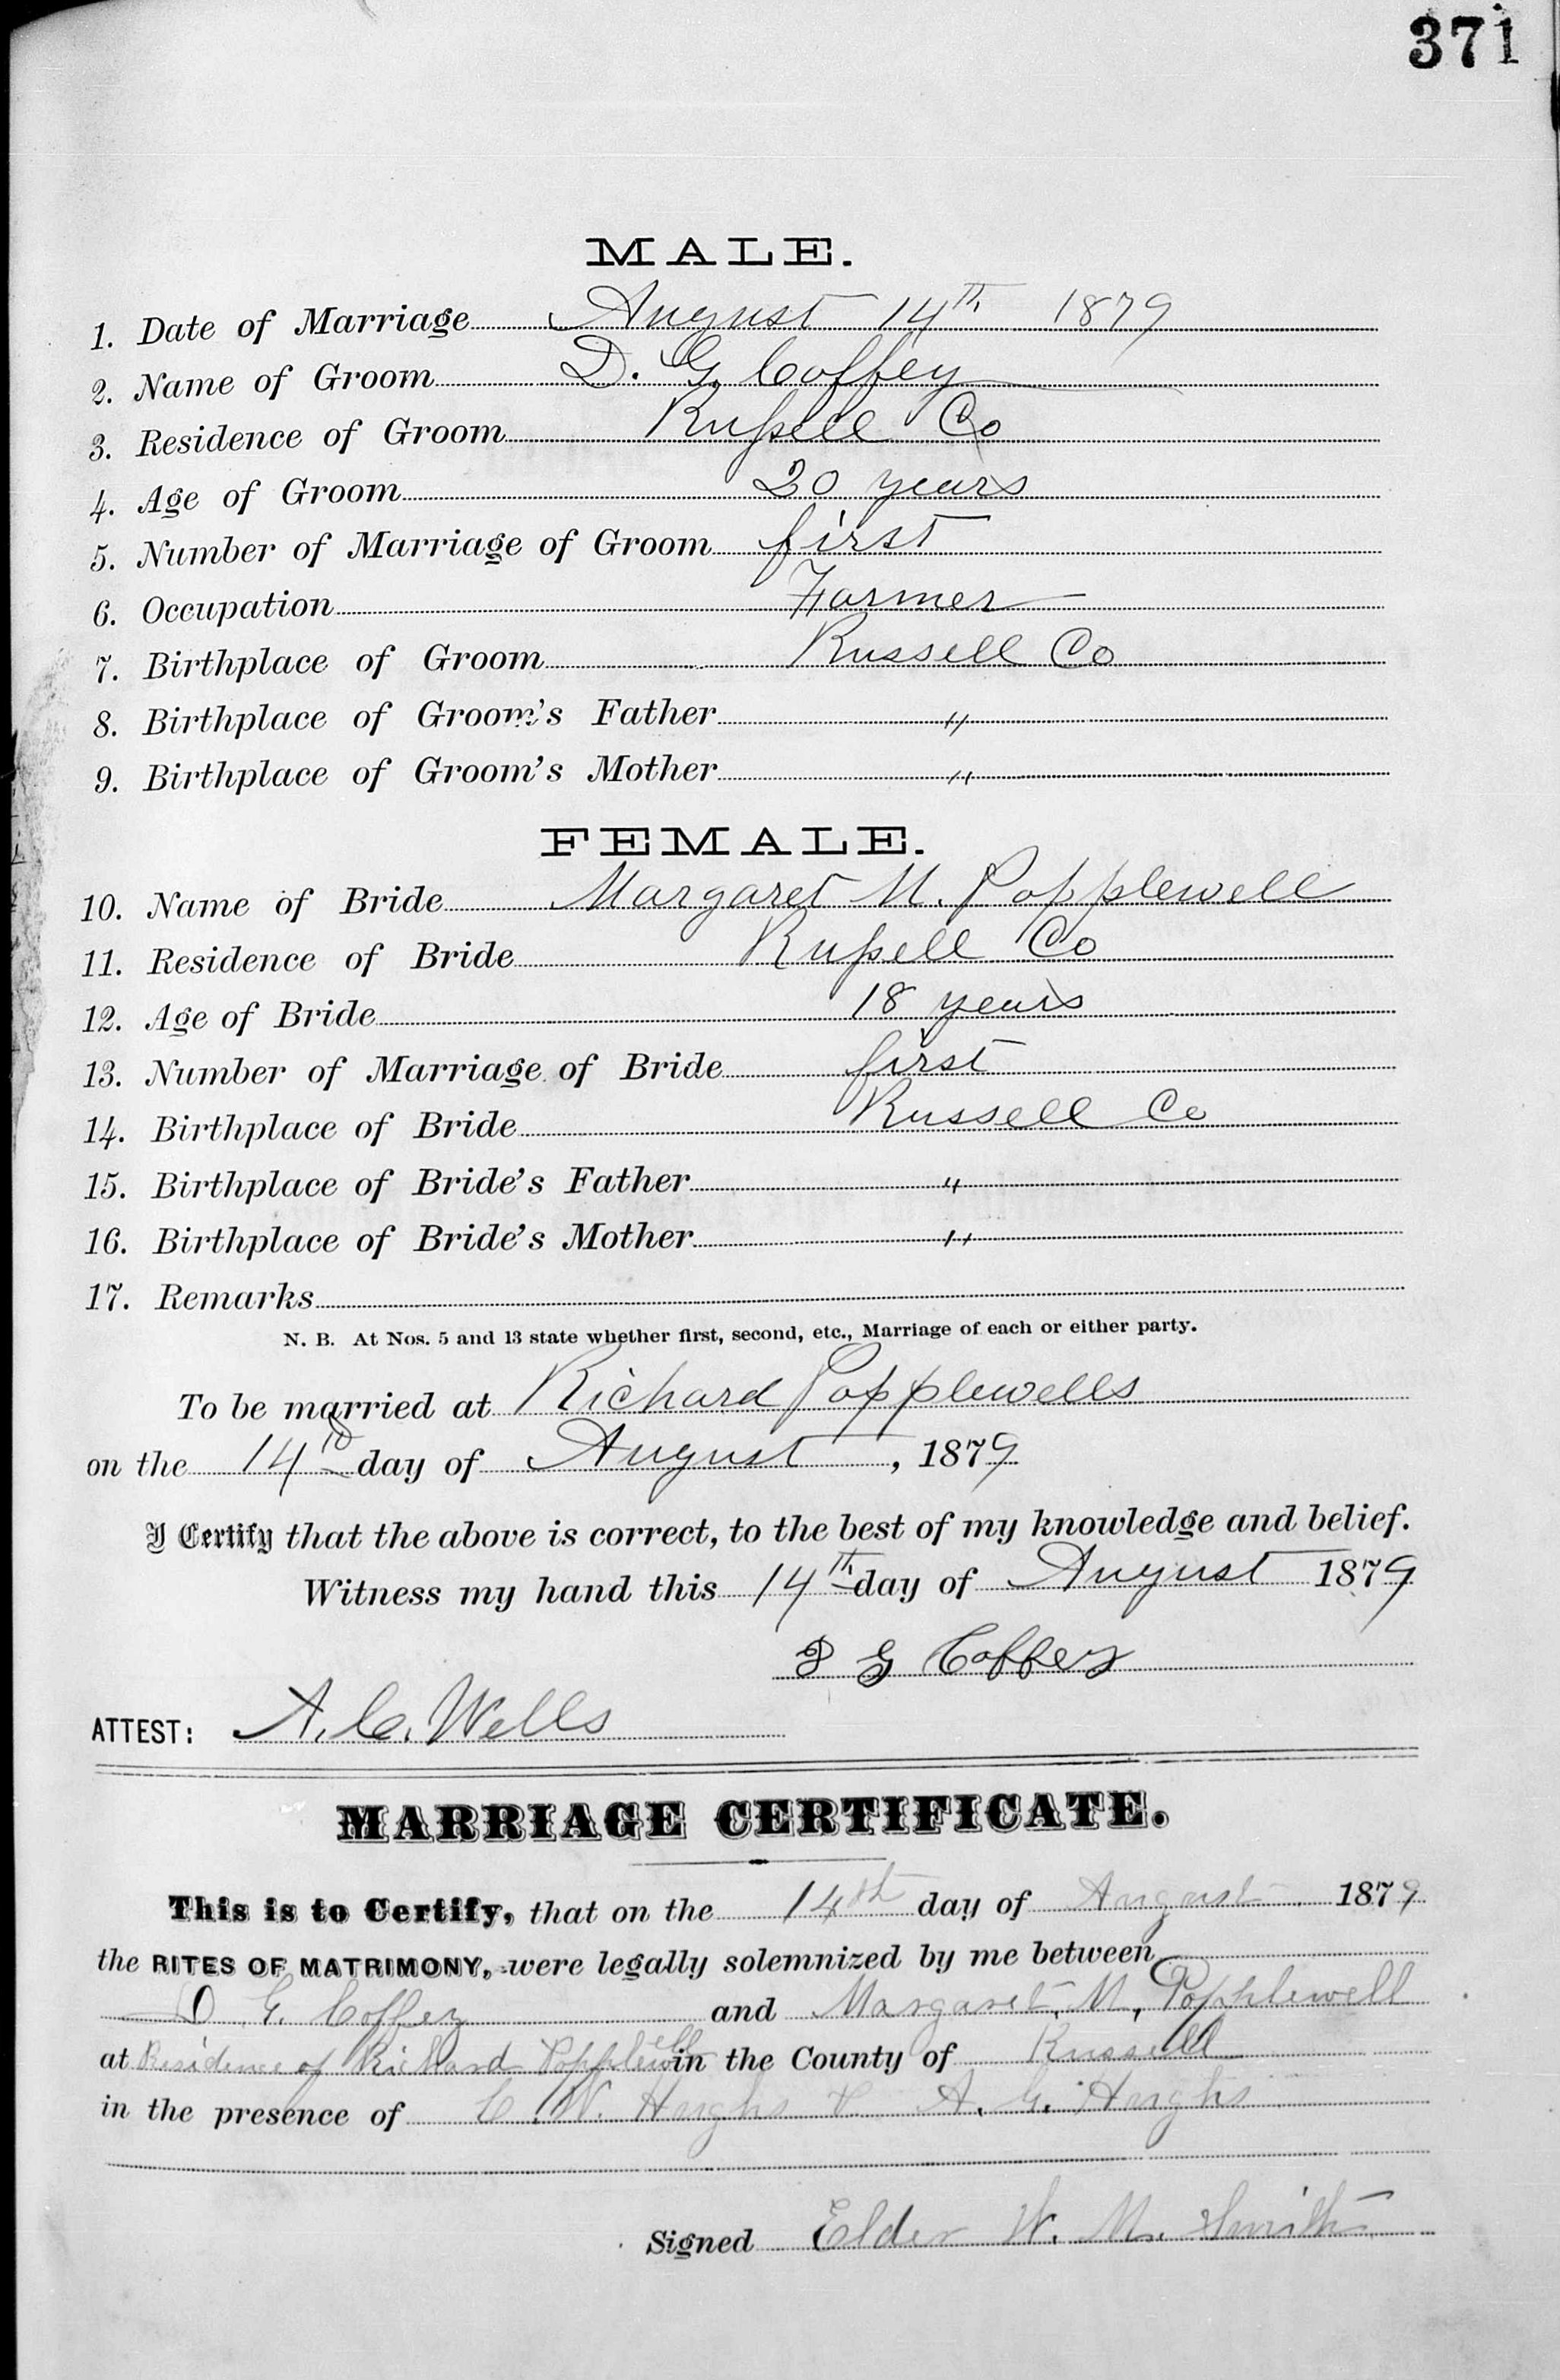 371
MALE.
1. Date of Marriage August 14th 1879
2. Name of Groom D. G. Coffey
3. Residence of Groom Russell Co
4. Age of Groom 20 years
5. Number of Marriage of Groom first
6. Occupation Farmer
7. Birthplace of Groom Russell Co
8. Birthplace of Groom's Father "
9. Birthplace of Groom's Mother "
FEMALE.
10. Name of Bride Margaret M. Popplewell
11. Residence of Bride Russell Co
12. Age of Bride 18 years
13. Number of Marriage of Bride first
14. Birthplace of Bride Russell Co
15. Birthplace of Bride's Father "
16. Birthplace of Bride's Mother "
17. Remarks
N. B. At Nos. 5 and 13 state whether first, second, etc., Marriage of each or either party.
To be married at Richard Popplewells
on the 14th day of August, 1879
I Certify that the above is correct, to the best of my knowledge and belief.
Witness my hand this 14th day of August 1879
G Coffey
ATTEST: A. C. Wells
MARRIAGE CERTIFICATE.
This is to Certify, that on the 14th day of August 1879
the RITES OF MATRIMONY, were legally solemnized by me between
D. G. Coffey and Margaret. M, Popplewell
at Residence of Richard Popplewell in the County of Russell
in the presence of C. W. Hughs & A. G. Hughs
Signed Elder W. M. Smith